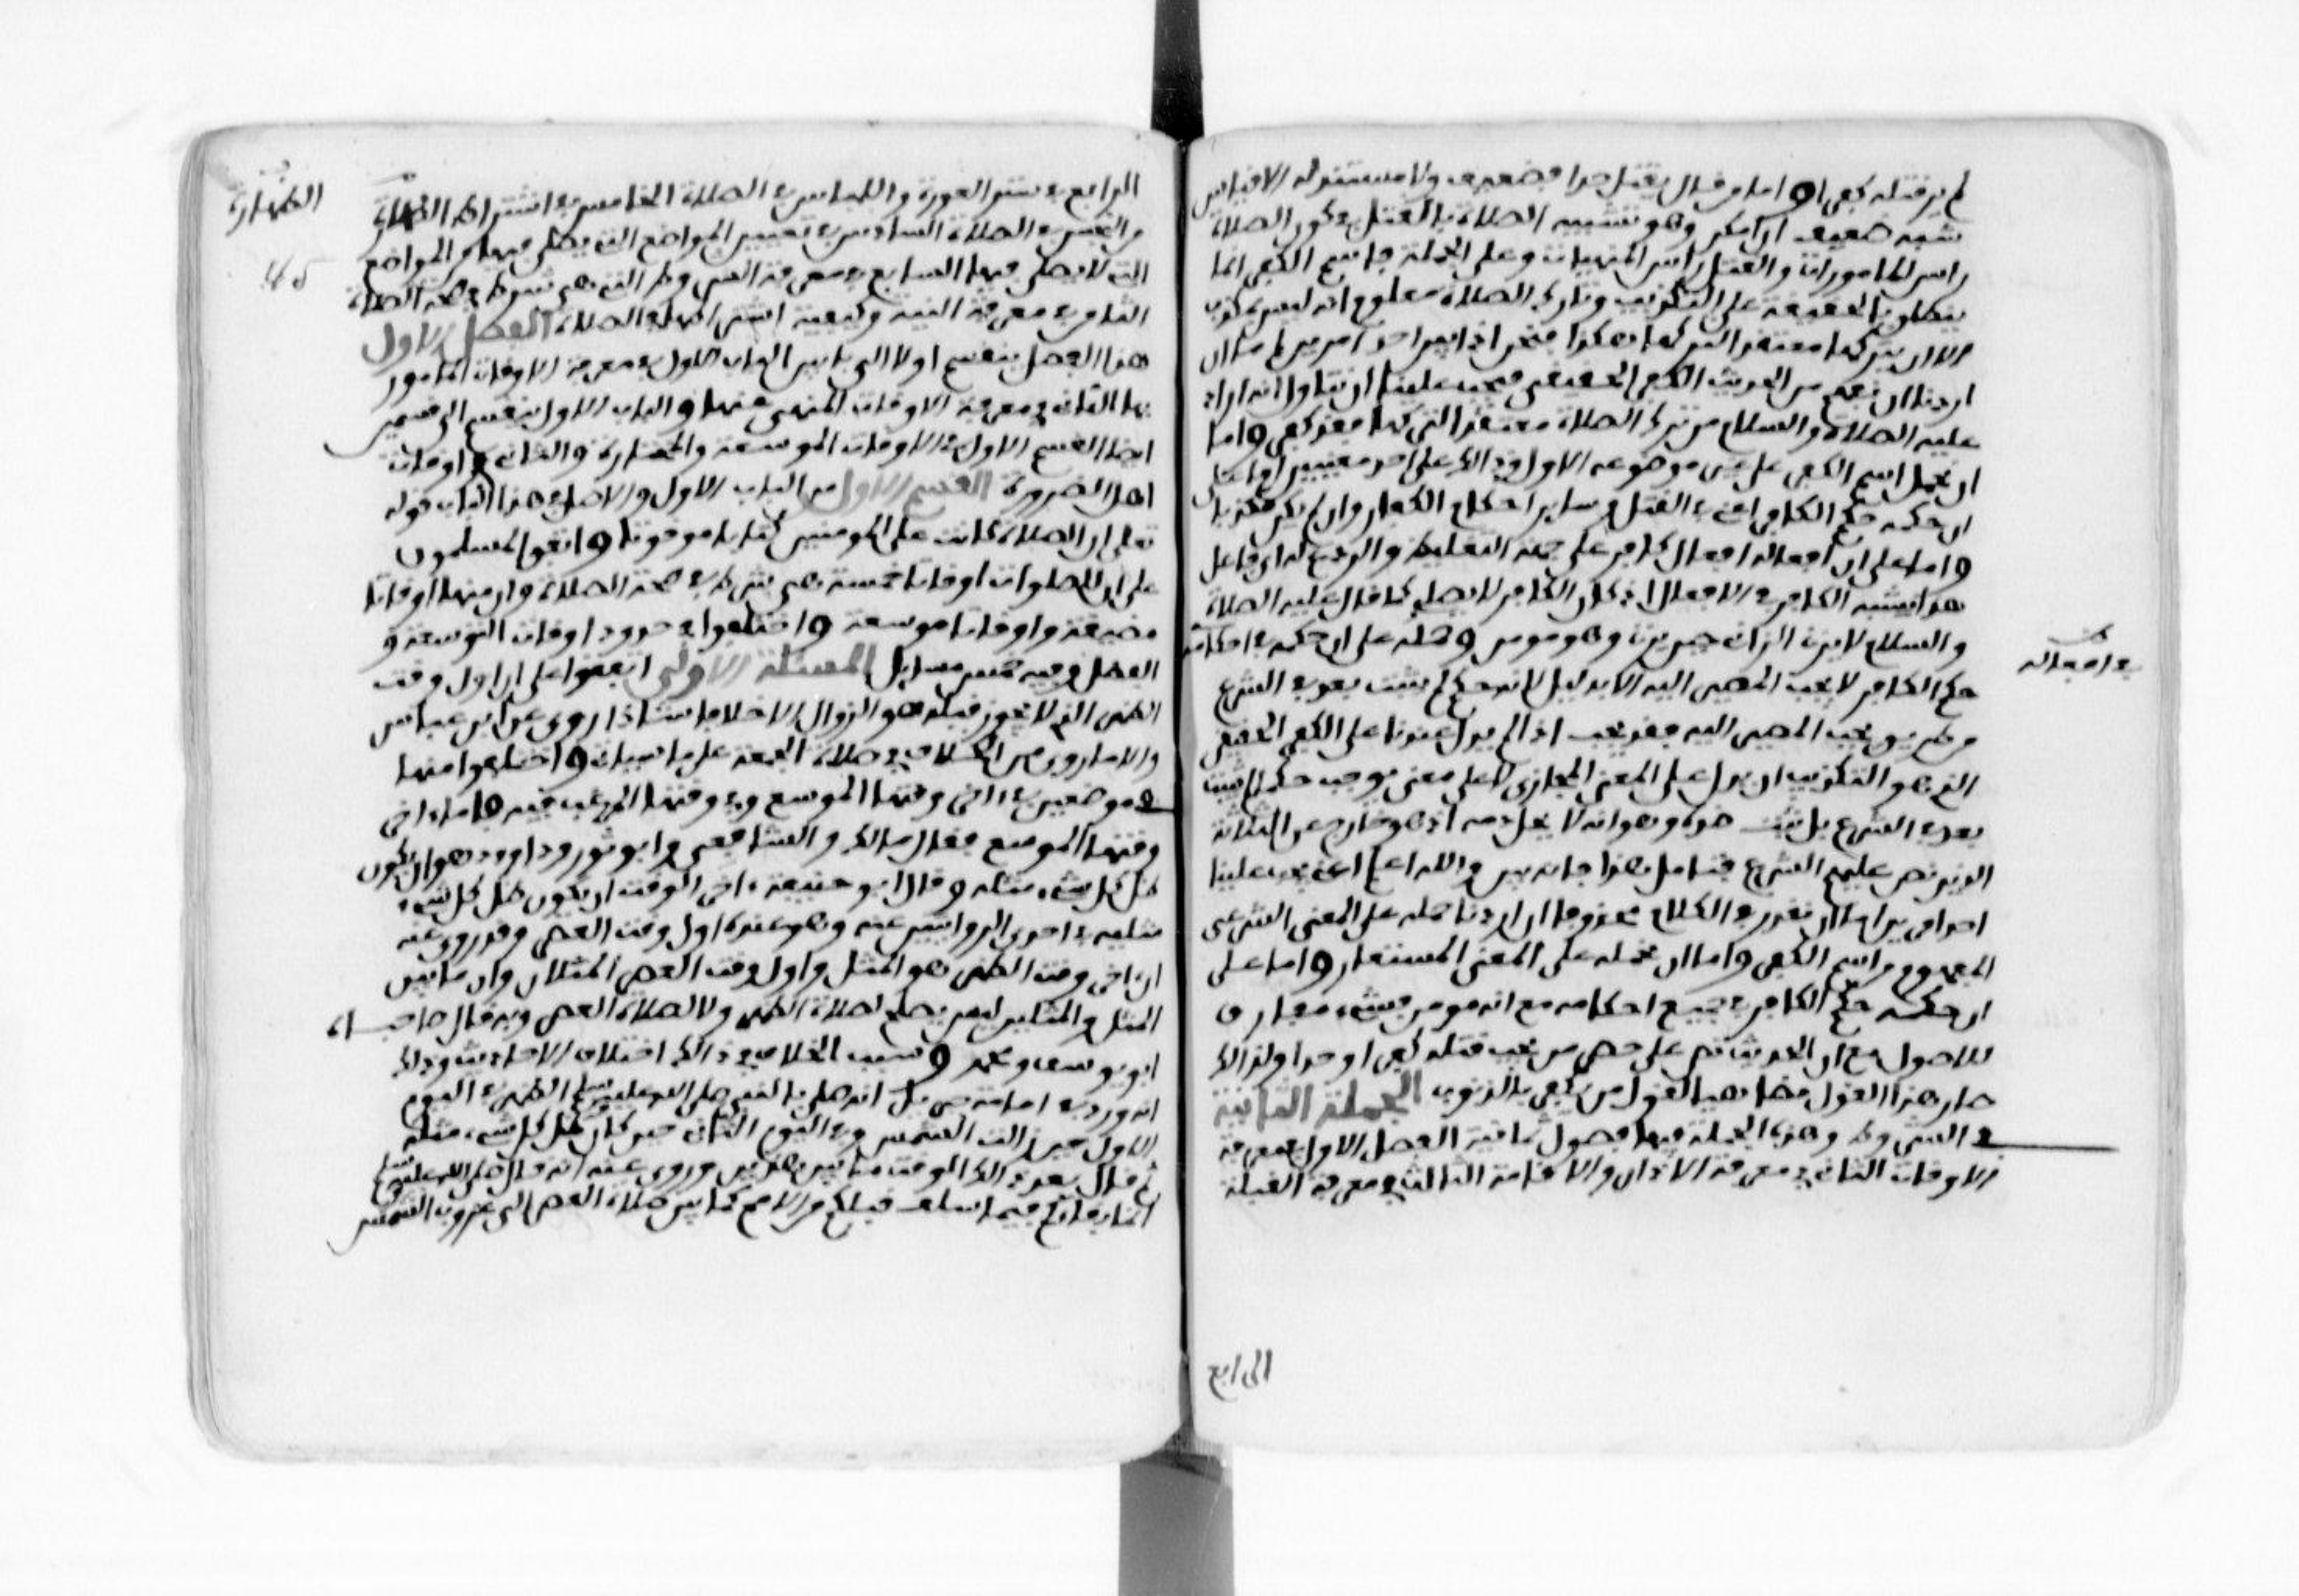 لم ير قتله كفرا واما من قال يقتل حدا فضعيف ولا مستند له الا قياس
شبه ضعيف ان امكن وهو تشبيه الصلاة بالقتل في كون الصلاة
راس المامورات والقتل راس المنهيات وعلى الجملة فاسم الكفر انما
ينطلق بالحقيقة على التكذيب وتارك الصلاة معلوم انه ليس بمكذب
الا ان يتركها معتقدا لتركها هكذا فنحن اذا بين احد امرين اما ان
اردنا ان نفهم من الحديث الكفر الحقيقي فيجب علينا ان نتاول انه اراد
عليه الصلاة والسلام من ترك الصلاة معتقدا لتركها فقد كفر واما
ان نحمل اسم الكفر على غير موضوعه الاول وذالك على احد معنيين اما على
ان حكمه حكم الكافر اعني في القتل وساير احكام الكفار وان لم يكن مكذبا
واما على ان افعاله افعال كافر على جهة التغليظ والردع له اي فاعل
هذا يشبه الكافر في الافعال اذ كان الكافر لا يصلي كما قال عليه الصلاة
والسلام لا يزني الزاني حين يزني وهو مومن وحمله على ان حكمه في احكامه
في افعاله
حكم الكافر لا يجب المصير اليه الا بدليل لانه حكم لم يثبت بعد في الشرع
من طريق يجب المصير اليه فقد يجب اذا لم يدل عندنا على الكفر الحقيقي
الذي هو التكذيب ان يدل على المعنى المجازي لا على معنى يوجب حكما لم يثبت
بعد في الشرع بل يثبت ضده وهو انه لا يحل دمه اذ هو خارج عن الثلاثة
الذين نص عليهم الشرع فتامل هذا فانه بين والله اعلم اعني انه يجب علينا
احد امرين اما ان نقدر في الكلام محذوفا ان اردنا حمله على المعنى الشرعي
المفهوم من اسم الكفر واما ان نحمله على المعنى المستعار واما حمله على
ان حكمه حكم الكافر في جميع احكامه مع انه مومن فشيء مفارق
للاصول مع ان الحديث نص على حصر من يجب قتله كفرا او حدا ولذالك
صار هذا القول مضاهيا لقول من يكفر بالذنوب الجملة الثانية
في الشروط وهذه الجملة فيها فصول ثمانية الفصل الاول في معرفة
الاوقات الثاني في معرفة الاذان والاقامة الثالث في معرفة القبلة
الرابع
الرابع في ستر العورة واللباس في الصلاة الخامس في اشتراط الطهارة
الطهارة
45
من النجس في الصلاة السادس في تعيين المواضع التي يصلى فيها والمواضع
التي لا يصلى فيها السابع في معرفة الشروط التي هي شروط في صحة الصلاة
الثامن في معرفة النية وكيفية اشتراطها في الصلاة الفصل الاول
هذا الفصل ينقسم اولا الى بابين الباب الاول في معرفة الاوقات المامور
بها الثاني في معرفة الاوقات المنهي عنها والباب الاول ينقسم الى قسمين
ايضا القسم الاول في الاوقات الموسعة والمختارة والثاني في اوقات
اهل الضرورة القسم الاول من الباب الاول والاصل في هذا الباب قوله
تعلى ان الصلاة كانت على المومنين كتابا موقوتا واتفق المسلمون
على ان للصلوات اوقاتا خمسة هي شرط في صحة الصلاة وان منها اوقاتا
مضيقة واوقاتا موسعة واختلفوا في حدود اوقات التوسعة و
الفضل وفيه خمس مسايل المسئلة الاولى اتفقوا على ان اول وقت
الظهر الذي لا تجوز قبله هو الزوال الا خلافا شاذا روي عن ابن عباس
والا ما روي من الخلاف في صلاة الجمعة على ما سياتي واختلفوا منها
في موضعين في اخر وقتها الموسع وفي وقتها المرغب فيه فاما اخر
وقتها الموسع فقال مالك والشافعي وابو ثور وداوود هو ان يكون
ظل كل شيء مثله وقال ابو حنيفة اخر الوقت ان يكون ظل كل شيء
مثليه في احدى الروايتين عنه وهو عنده اول وقت العصر وقد روي عنه
ان اخر وقت الظهر هو المثل واول وقت العصر المثلان وان ما بين
المثل والمثلين ليس يصلح لصلاة الظهر ولا لصلاة العصر وبه قال صاحباه
ابو يوسف ومحمد وسبب الخلاف في ذالك اختلاف الاحاديث وذلك
انه ورد في امامة جبريل انه صلى بالنبي صلى الله عليه وسلم الظهر في اليوم
الاول حين زالت الشمس وفي اليوم الثاني حين كان ظل كل شيء مثله
ثم قال بعد ذالك الوقت ما بين هذين وروي عنه انه قال صلى الله عليه وسلم
انما بقاؤكم فيما سلف قبلكم من الامم كما بين صلاة العصر الى غروب الشمس